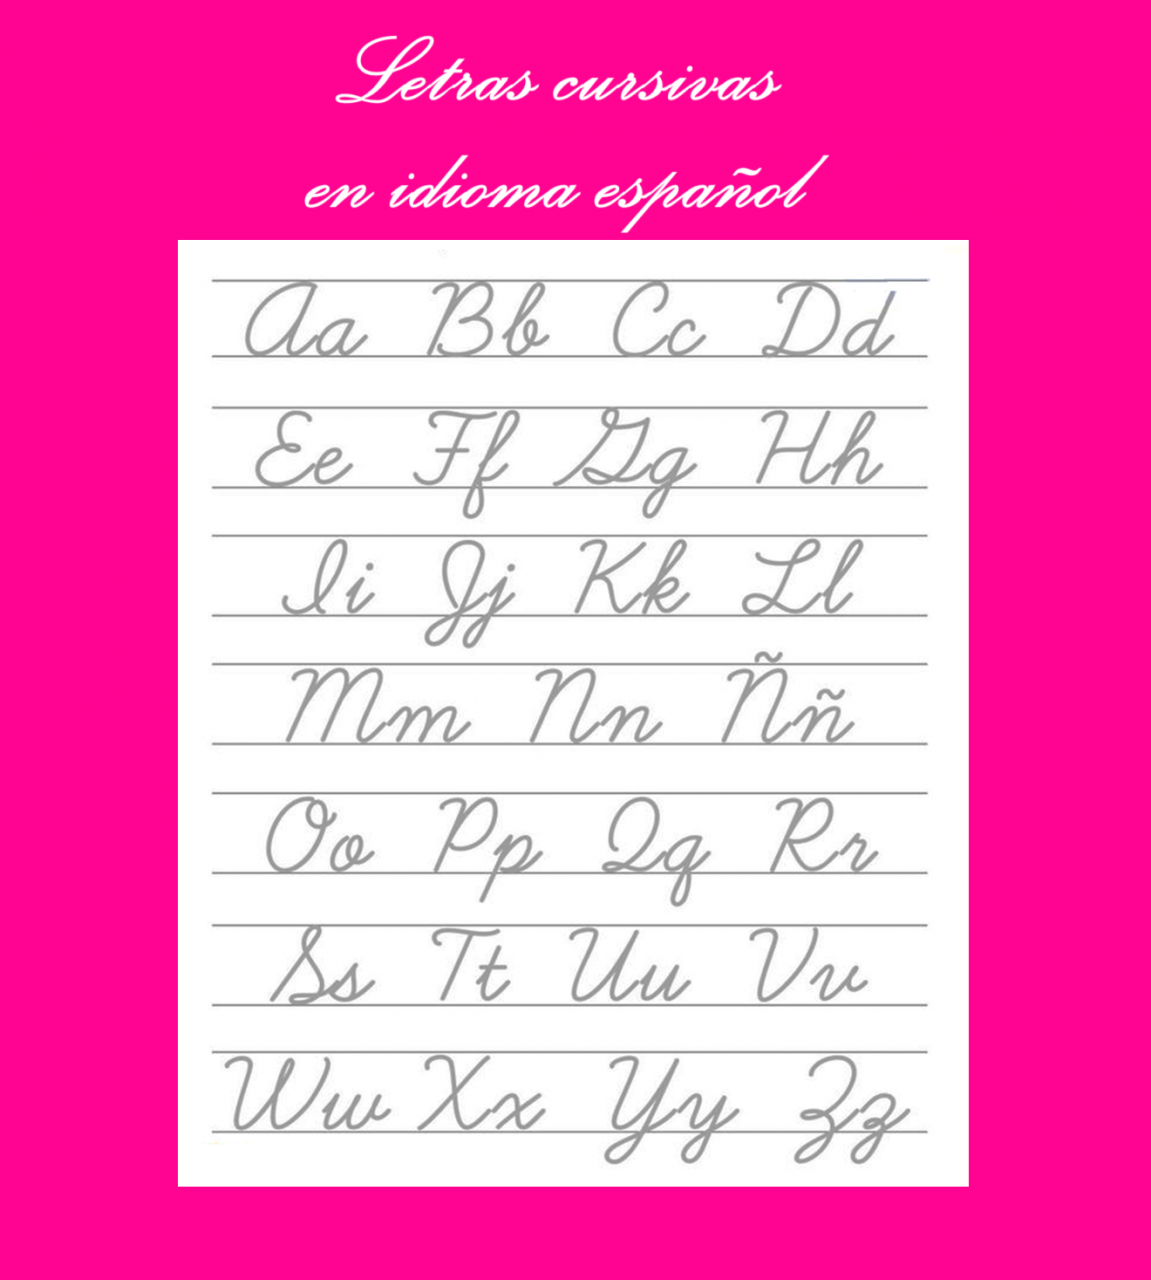 Letras cursivas
en idioma español
Aa Bb Cc Dd
Ee Ff Gg Hh
Ii Jj Kk Ll
Mm Nn Ññ
Oo Pp Qq Rr
Ss Tt Uu Vv
Ww Xx Yy Zz